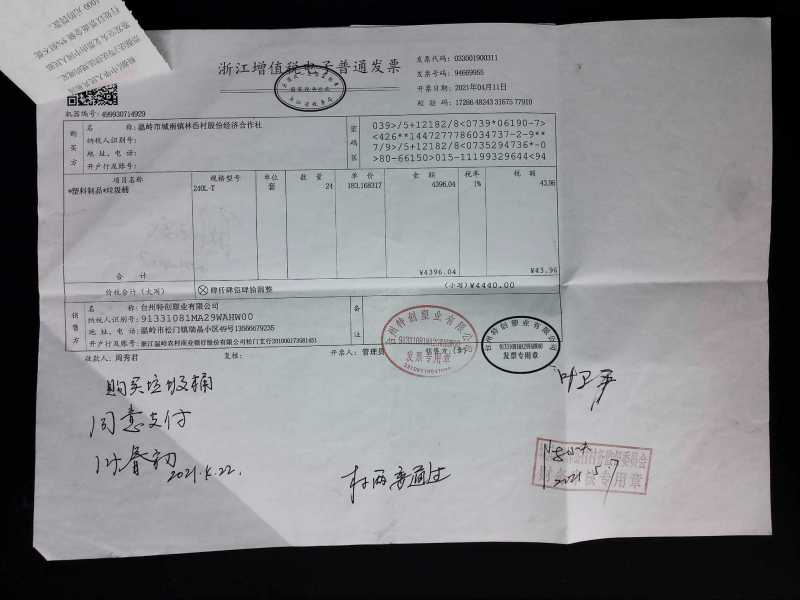 浙江增值税电子普通发票
发票代码：033001900311
发票号码：94669965
开票日期：2021年04月11日
校验码：17286 48243 31675 77910
机器编号：499930714929
购买方
名称：温岭市城南镇林岙村股份经济合作社
纳税人识别号：
地址、电话：
开户行及账号：
密码区
039>/5+12182/8<0739*06190-7>
<426**1447277786034737-2-9**
7/9>/5+12182/8<0735294736*-0
>80-66150>015-11199329644<94
项目名称 规格型号 单位 数量 单价 金额 税率 税额
*塑料制品*垃圾桶 240L-T 套 24 183.168317 4396.04 1% 43.96
合计 ¥4396.04 ¥43.96
价税合计（大写） 肆仟肆佰肆拾圆整 （小写）¥4440.00
销售方
名称：台州特创塑业有限公司
纳税人识别号：91331081MA29WAHW00
地址、电话：温岭市松门镇瑞晶小区49号13566679235
开户行及账号：浙江温岭农村商业银行股份有限公司松门支行201000173981451
备注
收款人：周秀君 复核： 开票人：管理员 销售方：(章)
台州特创塑业有限公司
91331081MA29WAHW00
发票专用章
台州特创塑业有限公司
91331081MA29WAHW00
发票专用章
购买垃圾桶
同意支付
2021.4.22.
村两委通过
叶卫平
村务监督委员会
财务审核专用章
2021.5.7